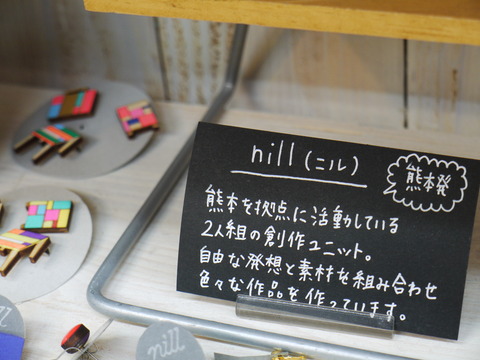 nill (ニル)
熊本発
熊本を拠点に活動している
2人組の創作ユニット。
自由な発想と素材を組み合わせ
色々な作品を作っています。
nill